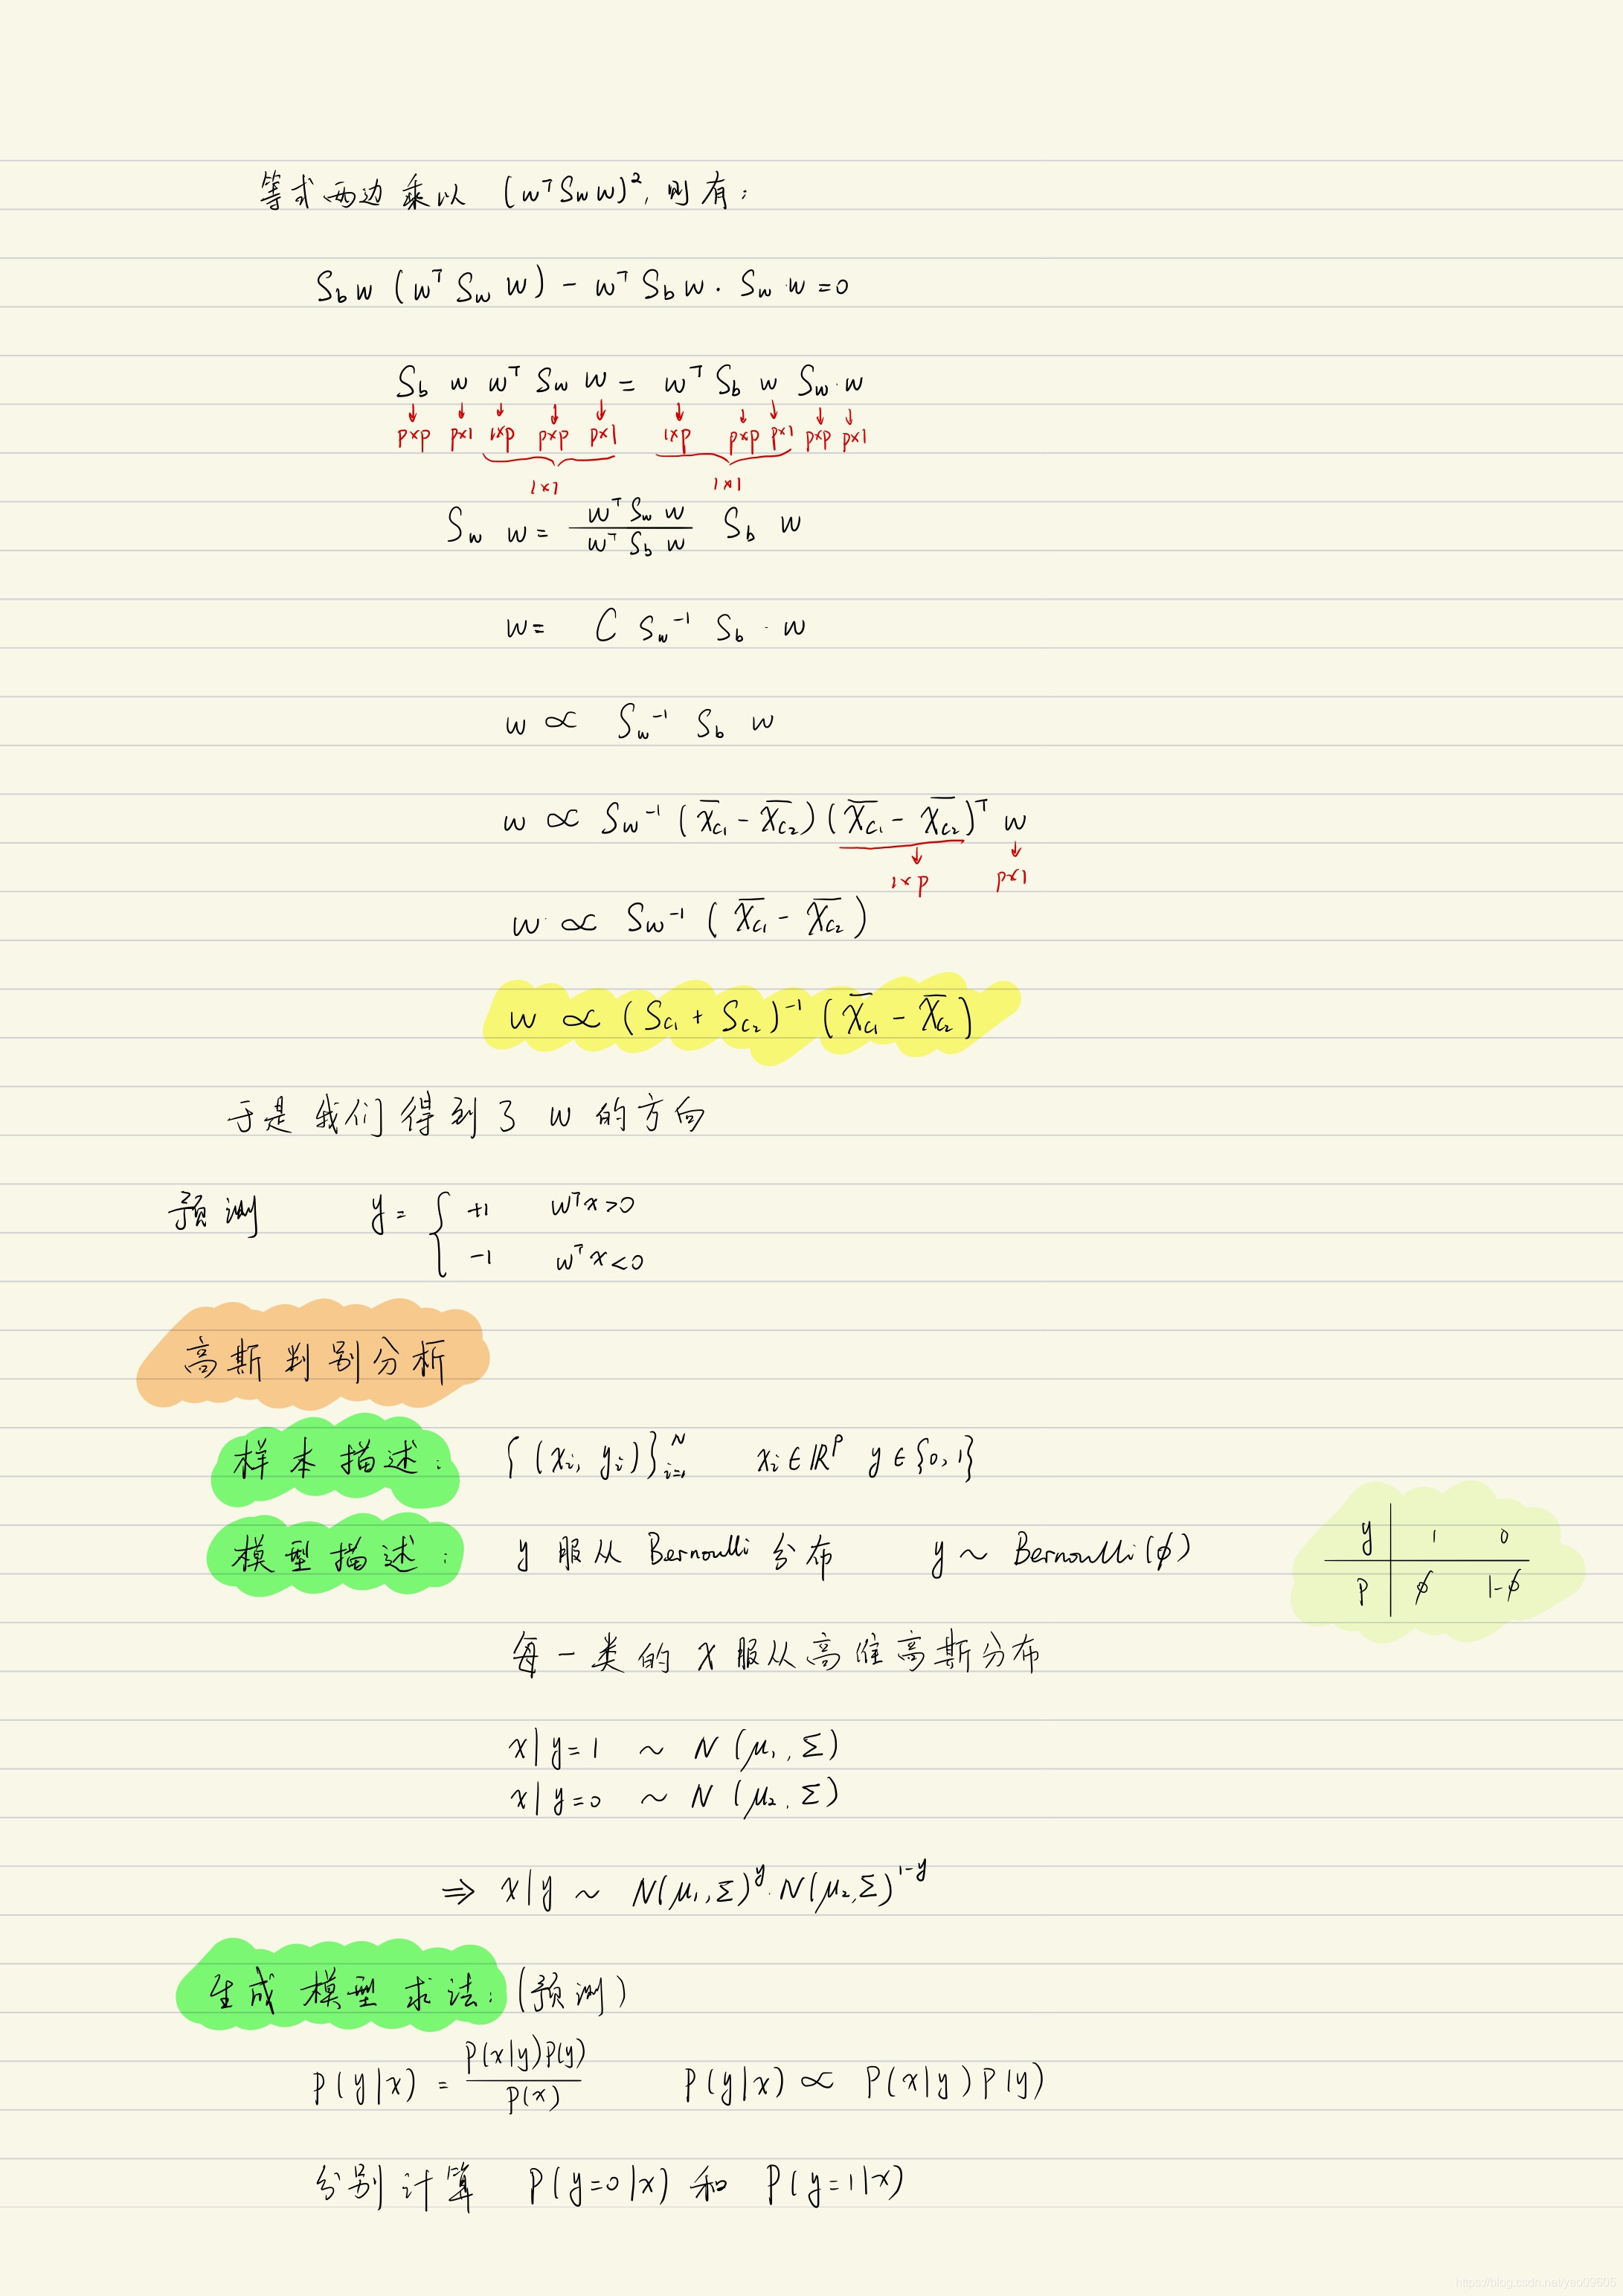 等式两边乘以 (wᵀS_w w)², 则有:
S_b w (wᵀ S_w w) - wᵀ S_b w · S_w · w = 0
S_b w wᵀ S_w w = wᵀ S_b w S_w · w
p×p p×1 1×p p×p p×1 1×p p×p p×1 p×p p×1
1×1 1×1
S_w w = (wᵀ S_w w)/(wᵀ S_b w) S_b w
w = C S_w⁻¹ S_b · w
w ∝ S_w⁻¹ S_b w
w ∝ S_w⁻¹ (X̄_C₁ - X̄_C₂) (X̄_C₁ - X̄_C₂)ᵀ w
1×p p×1
w ∝ S_w⁻¹ (X̄_C₁ - X̄_C₂)
w ∝ (S_C₁ + S_C₂)⁻¹ (X̄_C₁ - X̄_C₂)
于是我们得到了 w 的方向
预测 y = { +1 wᵀx>0
-1 wᵀx<0
高斯判别分析
样本描述: {(xᵢ, yᵢ)}ᵢ₌₁ᴺ xᵢ∈ℝᵖ y∈{0,1}
模型描述: y 服从 Bernoulli 分布 y ~ Bernoulli(ϕ)
y 1 0
P ϕ 1-ϕ
每一类的 x 服从高维高斯分布
x|y=1 ~ N(μ₁, Σ)
x|y=0 ~ N(μ₂, Σ)
⇒ x|y ~ N(μ₁,Σ)^y · N(μ₂,Σ)^(1-y)
生成模型求法: (预测)
P(y|x) = P(x|y)P(y)/P(x) P(y|x) ∝ P(x|y)P(y)
分别计算 P(y=0|x) 和 P(y=1|x)
https://blog.csdn.net/yao09605